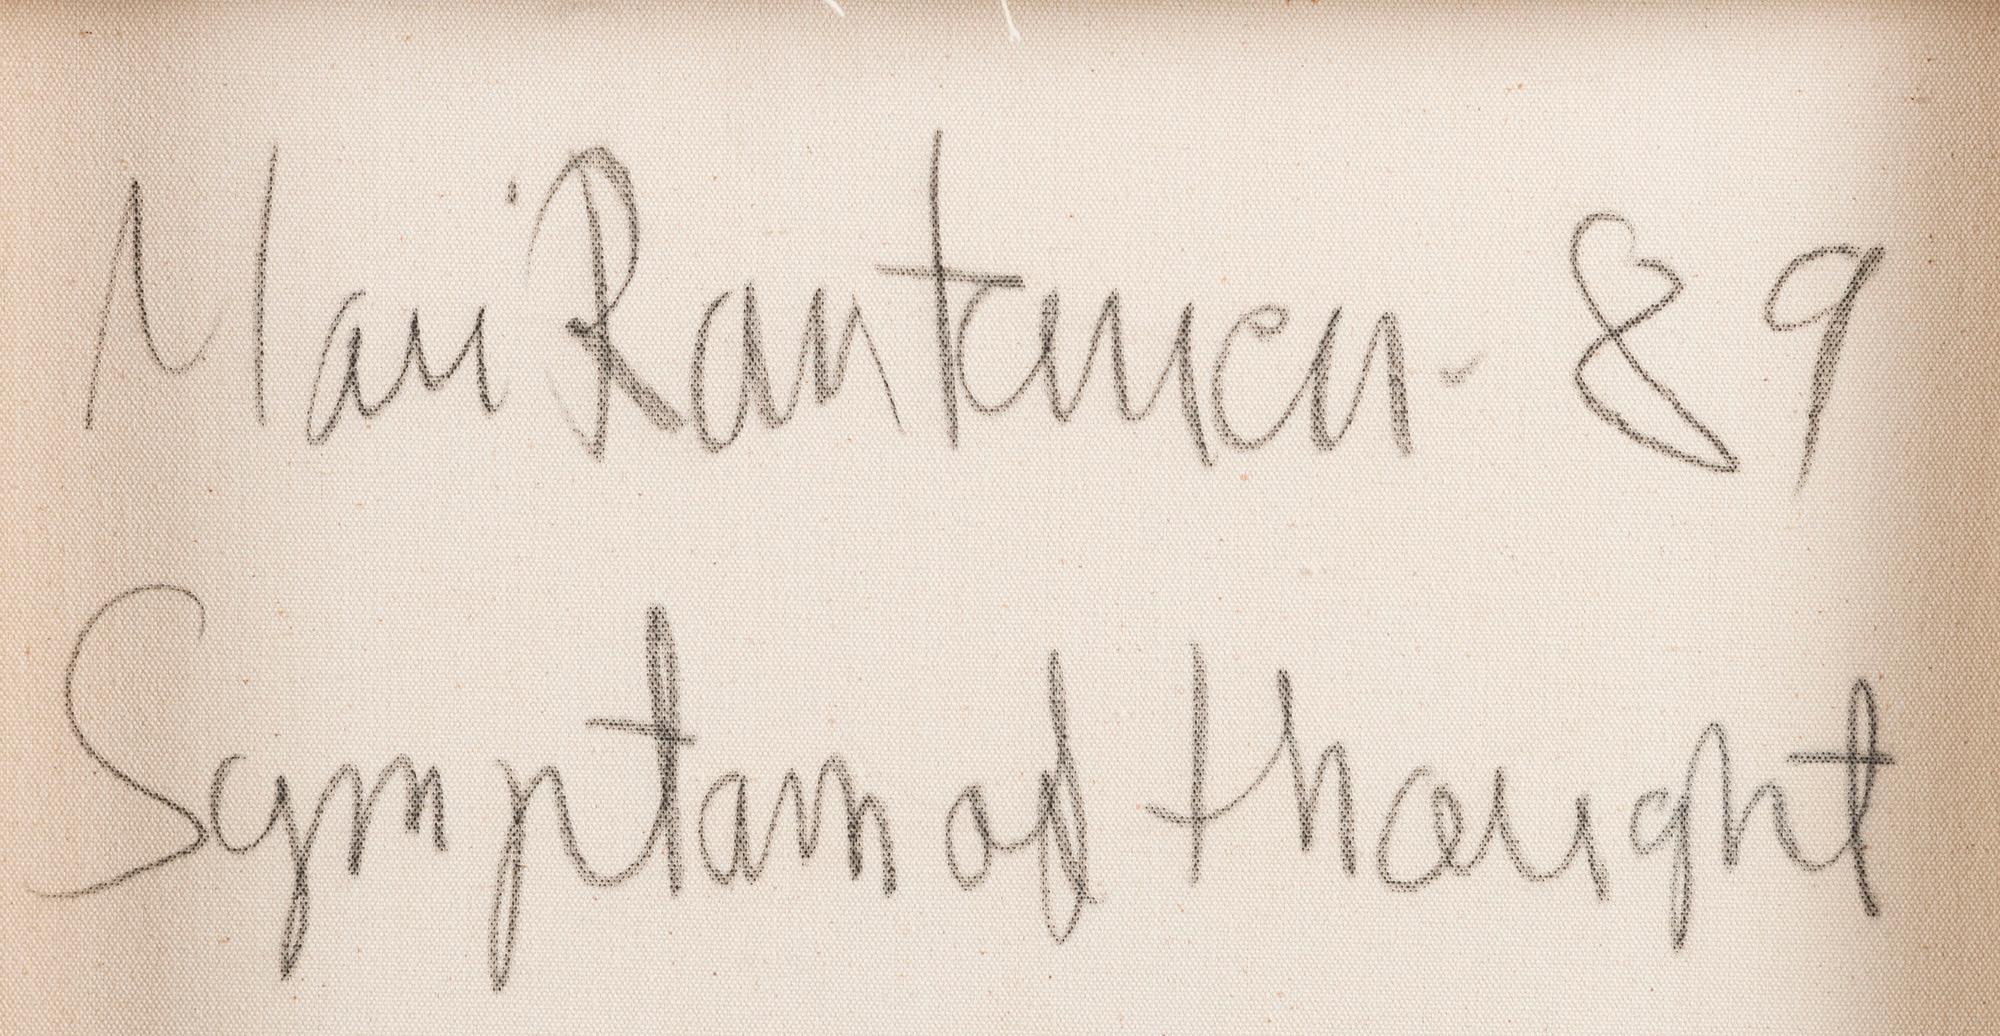 Mari Rantanen - 89
Symptom of thought